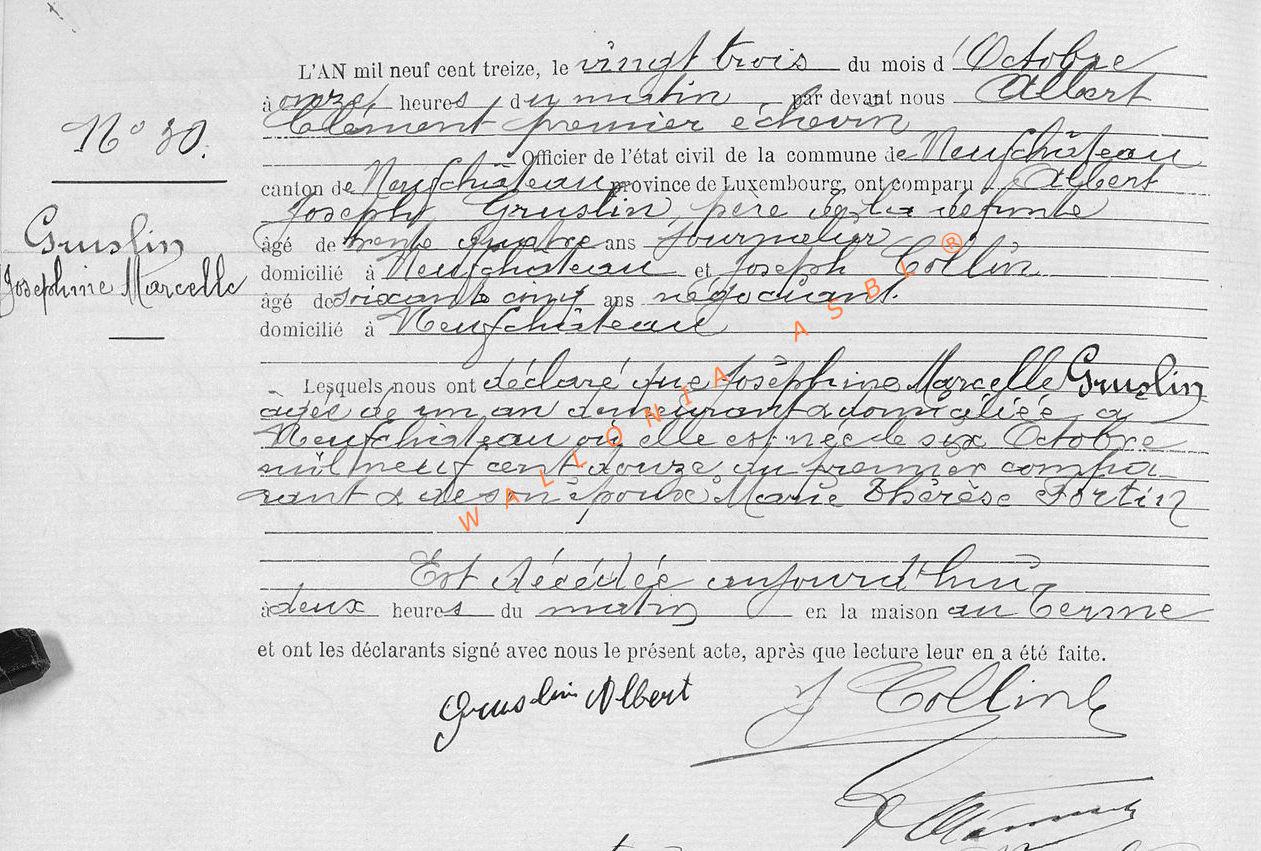 L'AN mil neuf cent treize, le vingt trois du mois d'Octobre
à onze heures du matin par devant nous Albert
Clément premier échevin
Officier de l'état civil de la commune de Neufchâteau
N° 30.
canton de Neufchâteau province de Luxembourg, ont comparu Albert
Joseph Gruslin, père de la defunte
Gruslin
âgé de trente quatre ans journalier
domicilié à Neufchâteau et Joseph Collin
Josephine Marcelle
âgé de soixante cinq ans négociant.
domicilié à Neufchâteau
Lesquels nous ont déclaré que Joséphine Marcelle Gruslin
âgée de un an demeurant & domiciliée à
Neufchâteau où elle est née le six Octobre
mil neuf cent douze, du premier compa
rant & de son épouse Marie Thérèse Fortin
Est décédée aujourd'hui
à deux heures du matin en la maison au Terme
et ont les déclarants signé avec nous le présent acte, après que lecture leur en a été faite.
Gruslin Albert
J Collin
WALLONIA ASBL ®